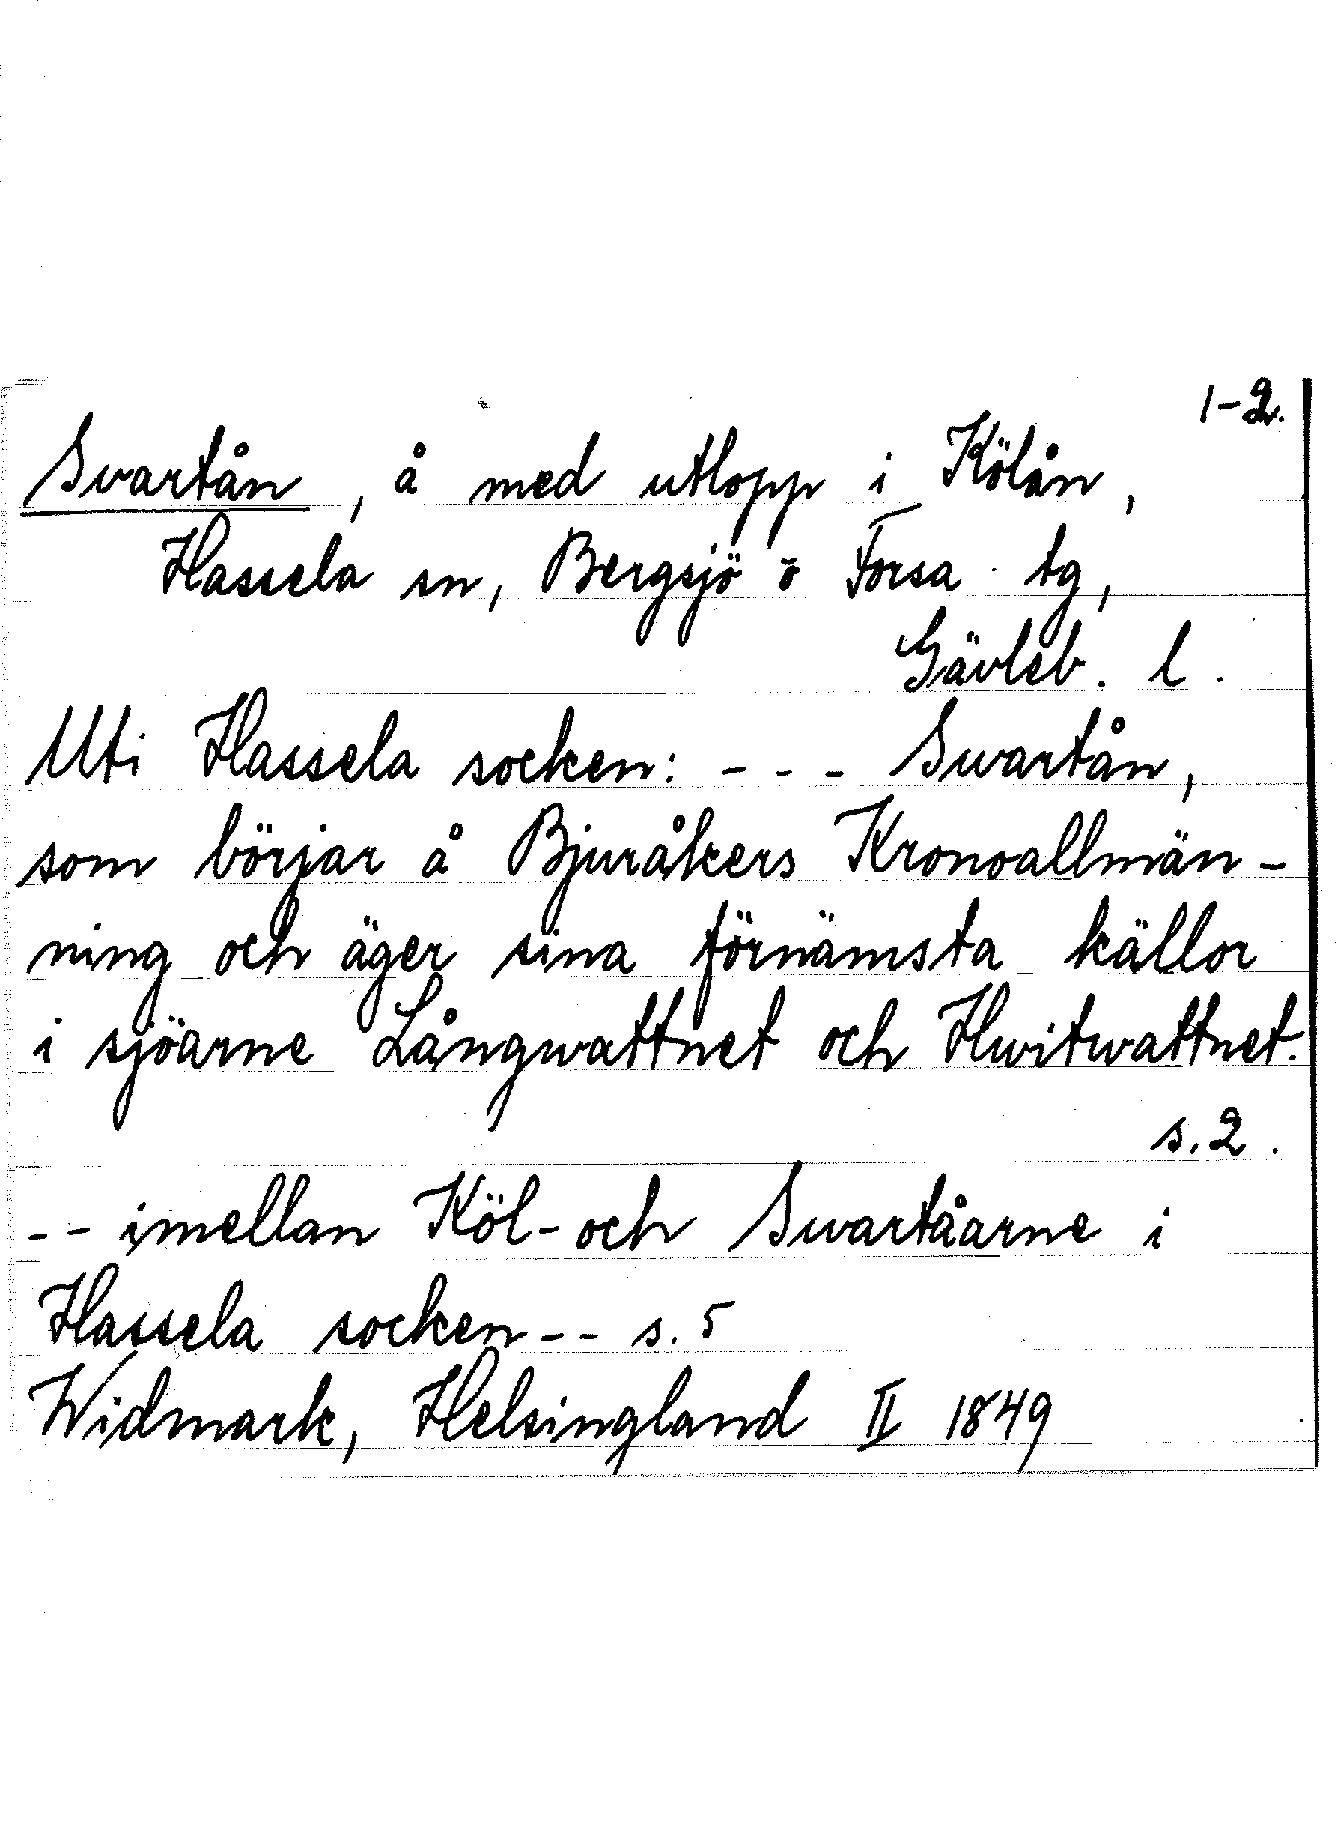 1-2.
Svartån, å med utlopp i Kölån,
Hassela sn, Bergsjö o Forsa tg,
Gävleb. l.
Uti Hassela socken: - - - Swartån,
som börjar å Bjuråkers Kronoallmän-
ning och äger sina förnämsta källor
i sjöarne Långwattnet och Hwitwattnet.
s. 2.
-- imellan Köl- och Swartåarne i
Hassela socken -- s. 5
Widmark, Helsingland II 1849